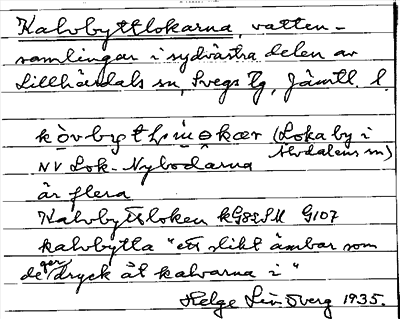 Kalvbyttlokarna, vatten-
samlingar i sydvästra delen av
Lillhärdals sn, Svegs tg, Jämtl. l.
(Loka by i
NV Lok-Nybodarna Älvdalens sn)
är flera
Kalvbyttloken
kalvbytta "ett slikt ämbar som
de ger dryck åt kalvarna i"
Helge Lindberg 1935.